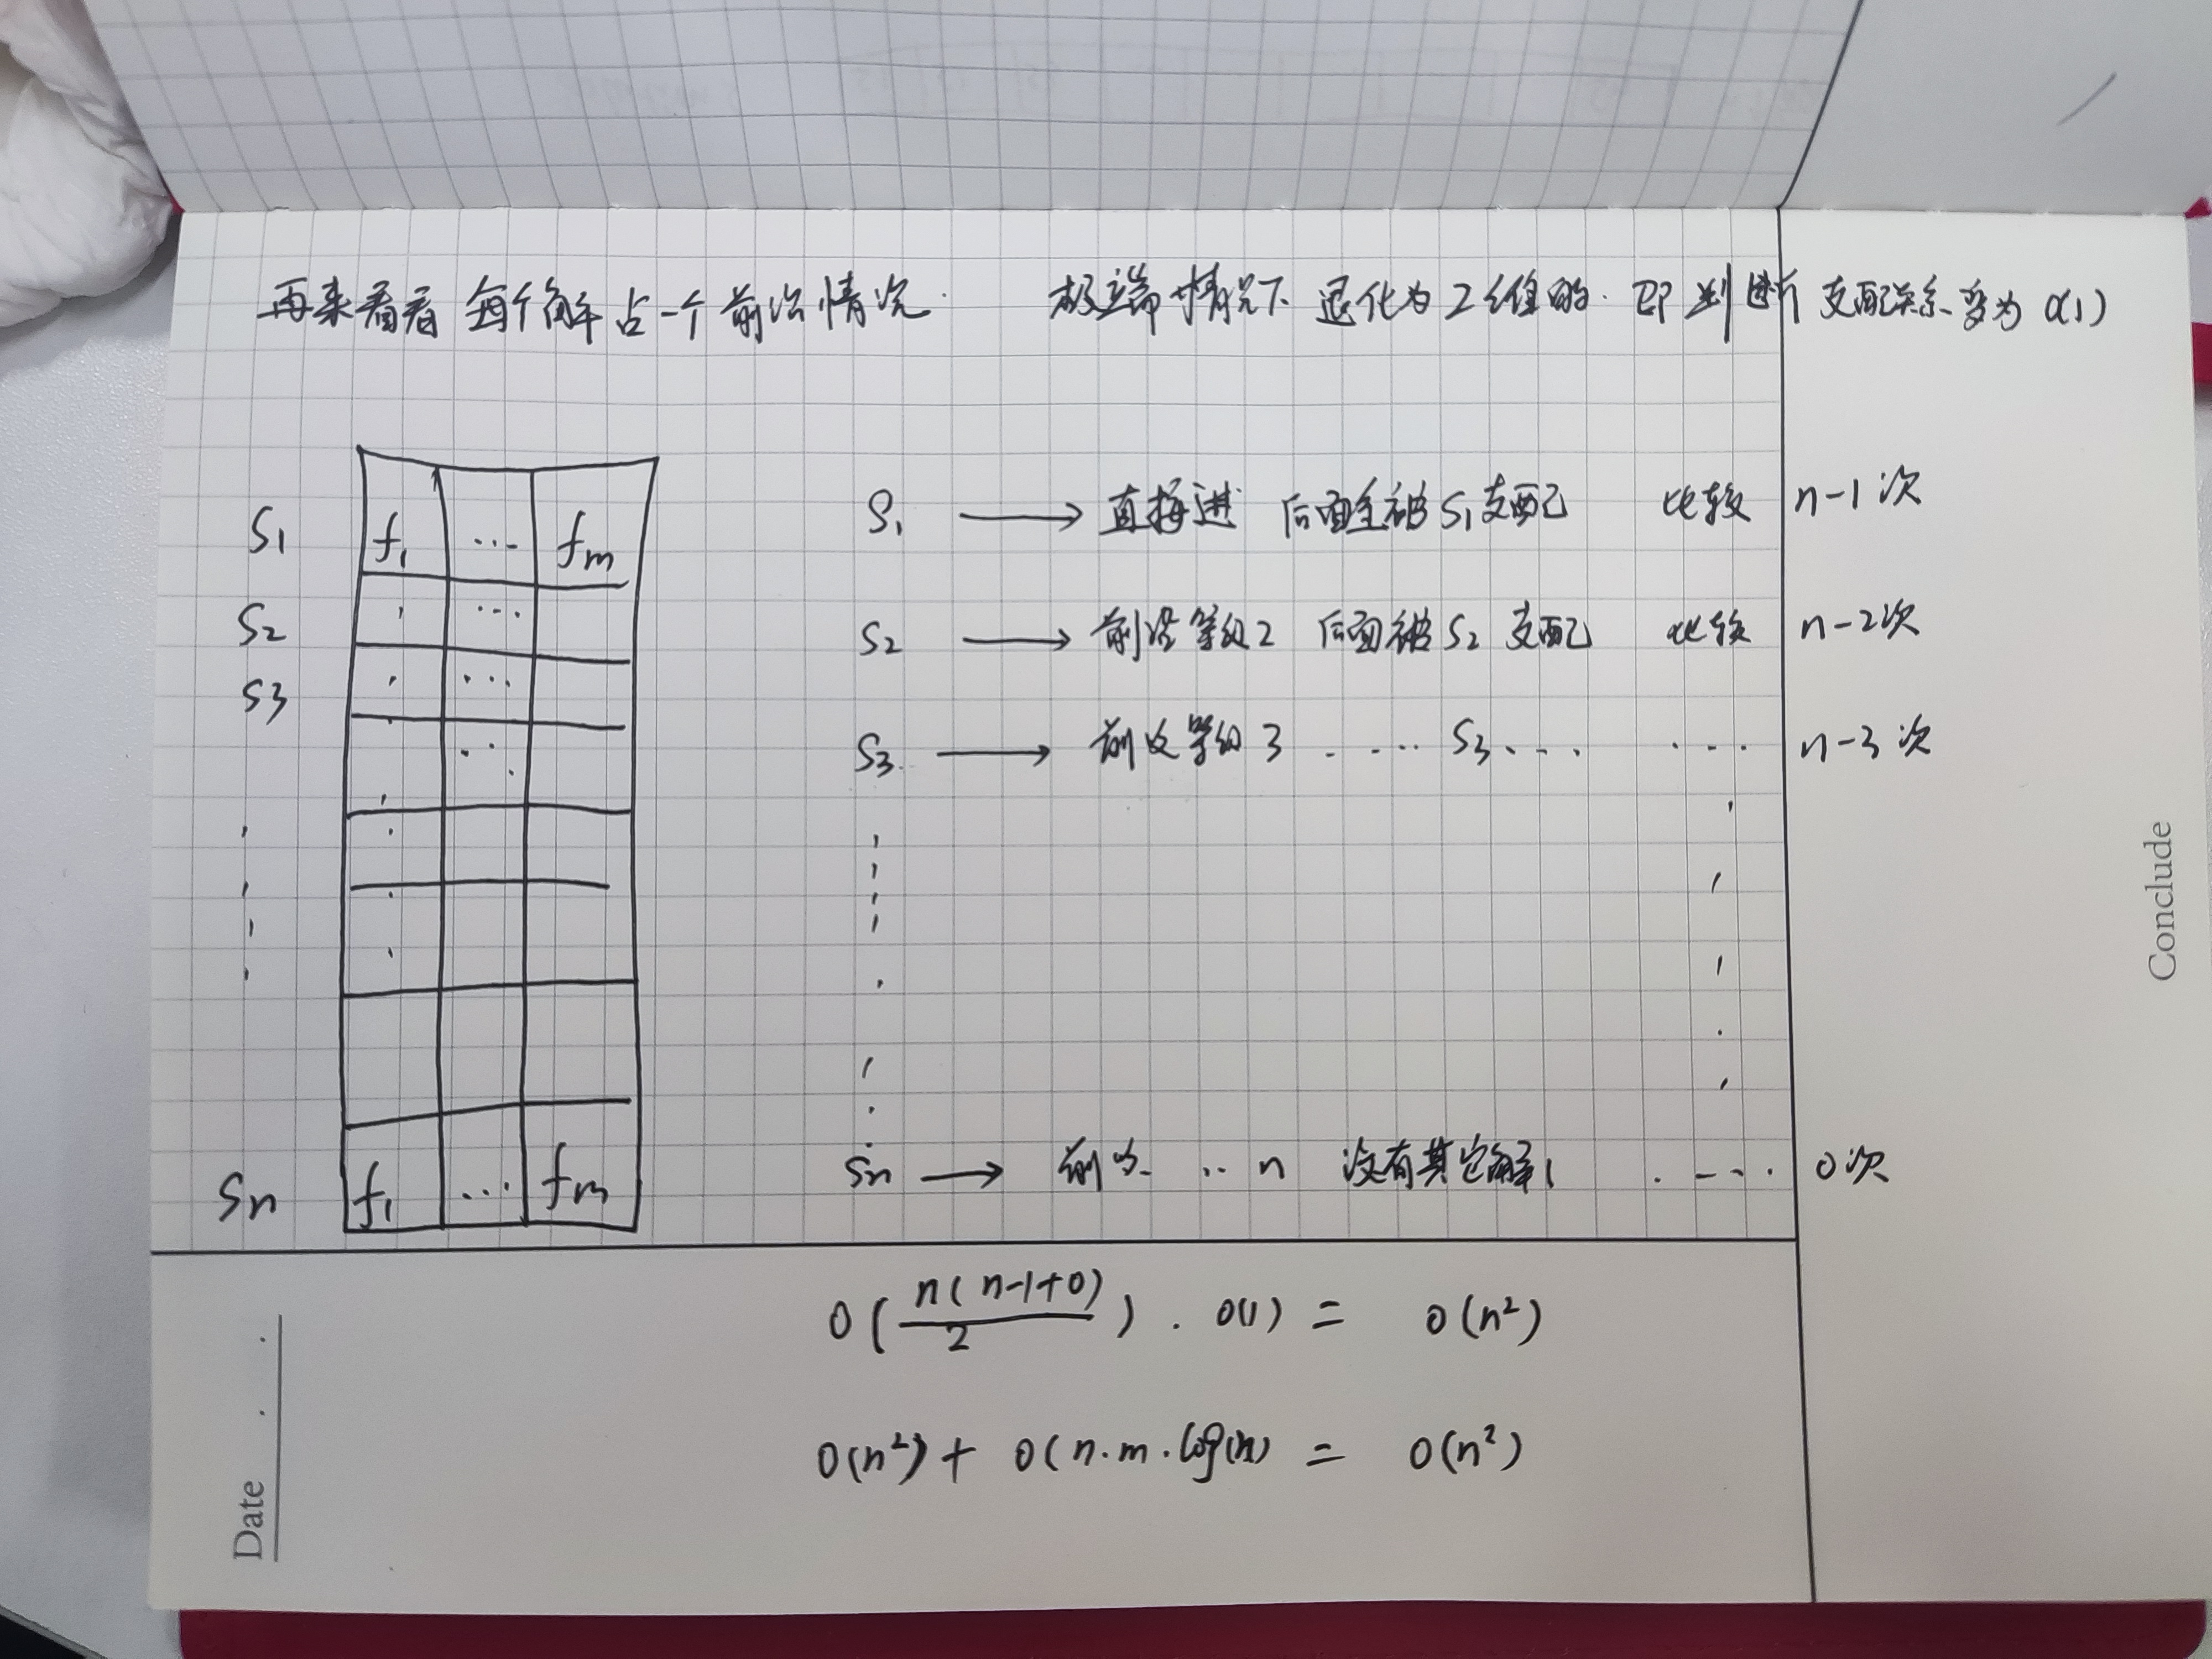 再来看看 每个解占一个前沿情况. 极端情况下 退化为2维的. 即判断支配关系变为 O(1)
S1 f1 ... fm
S2 ...
S3 ...
Sn f1 ... fm
S1 → 直接进 后面全被S1支配 比较 n-1次
S2 → 前沿等级2 后面被S2支配 比较 n-2次
S3 → 前沿等级3 ..... S3 .... ... n-3次
Sn → 前沿 .. n 没有其它解 ..... 0次
O(n(n-1+0)/2) . O(1) = O(n²)
O(n²) + O(n.m.log(n) = O(n²)
Conclude
Date